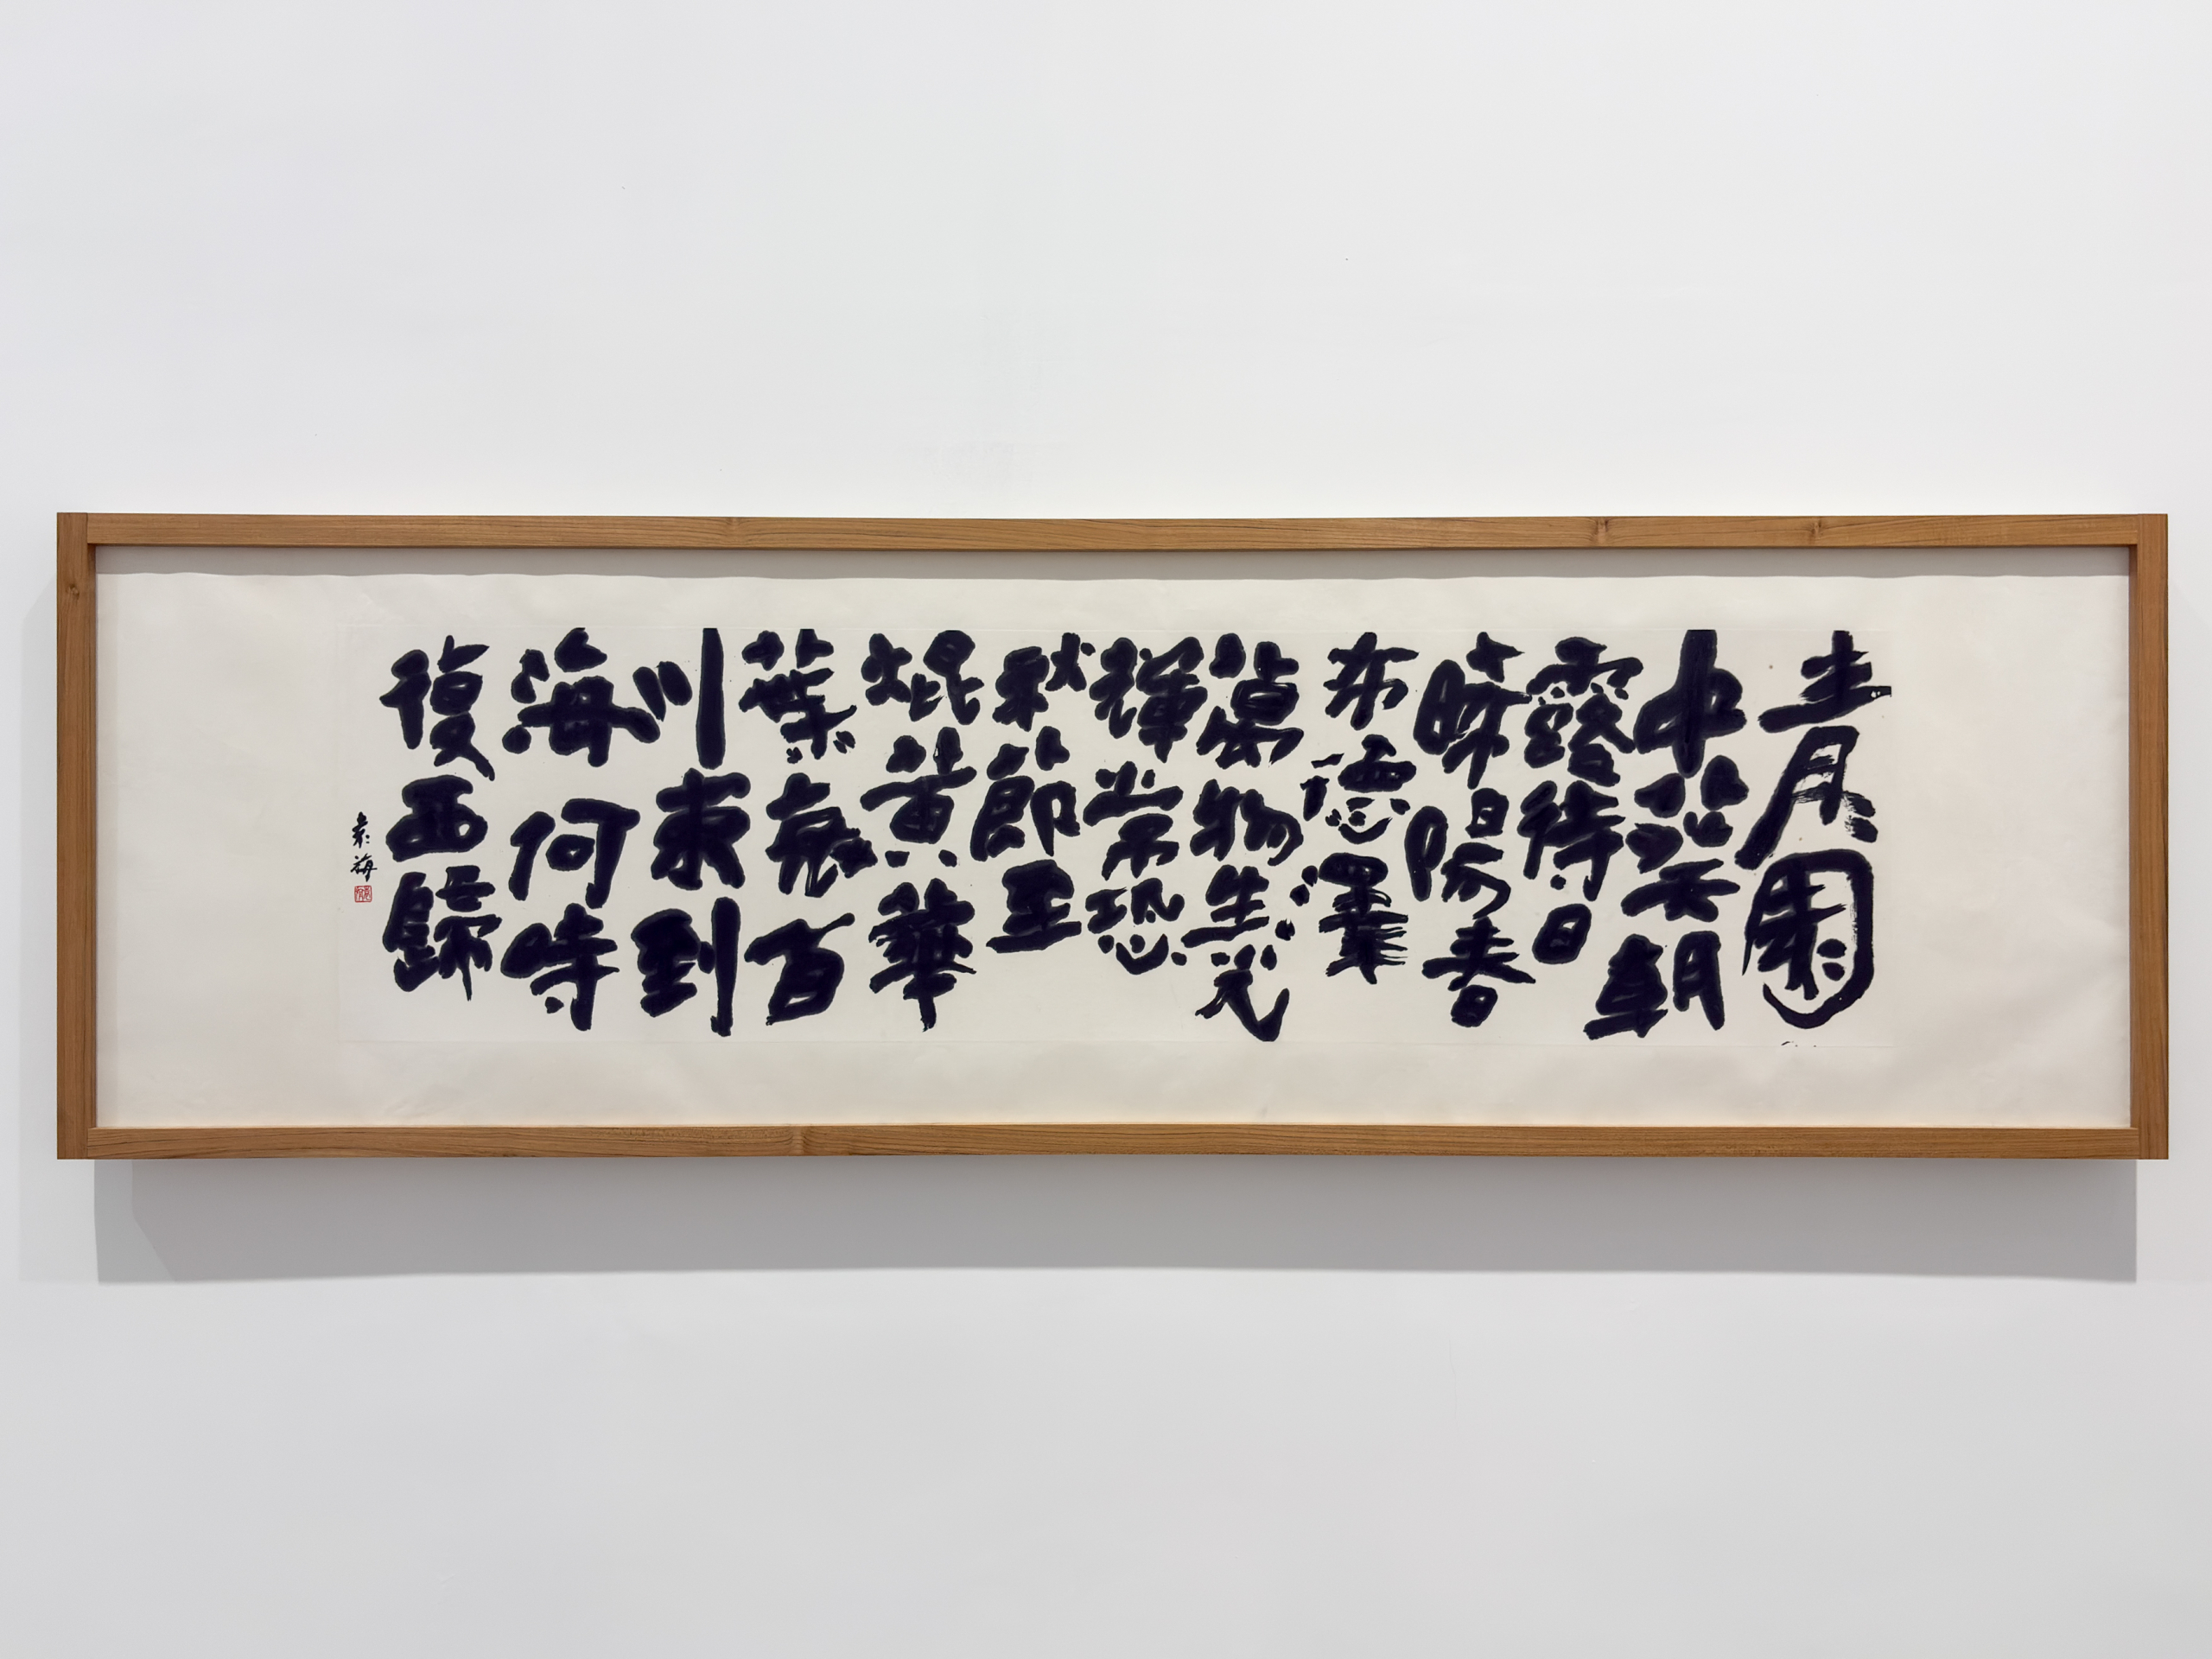 青々園
中葵朝
露待日
晞陽春
布德澤
萬物生光
輝常恐
秋節至
焜黃華
葉衰百
川東到
海何時
復西歸
袁